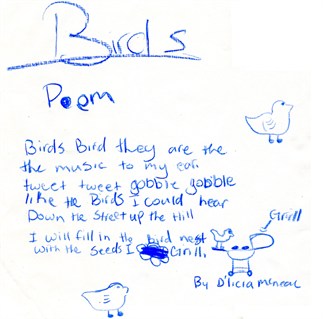 Birds
Poem
Birds Bird they are the
the music to my ear.
tweet tweet gobble gobble
like the Birds I could hear
Down the Street up the Hill
I will fill in the bird nest
with the seeds I Grill.
Grill
By D'licia McNeal